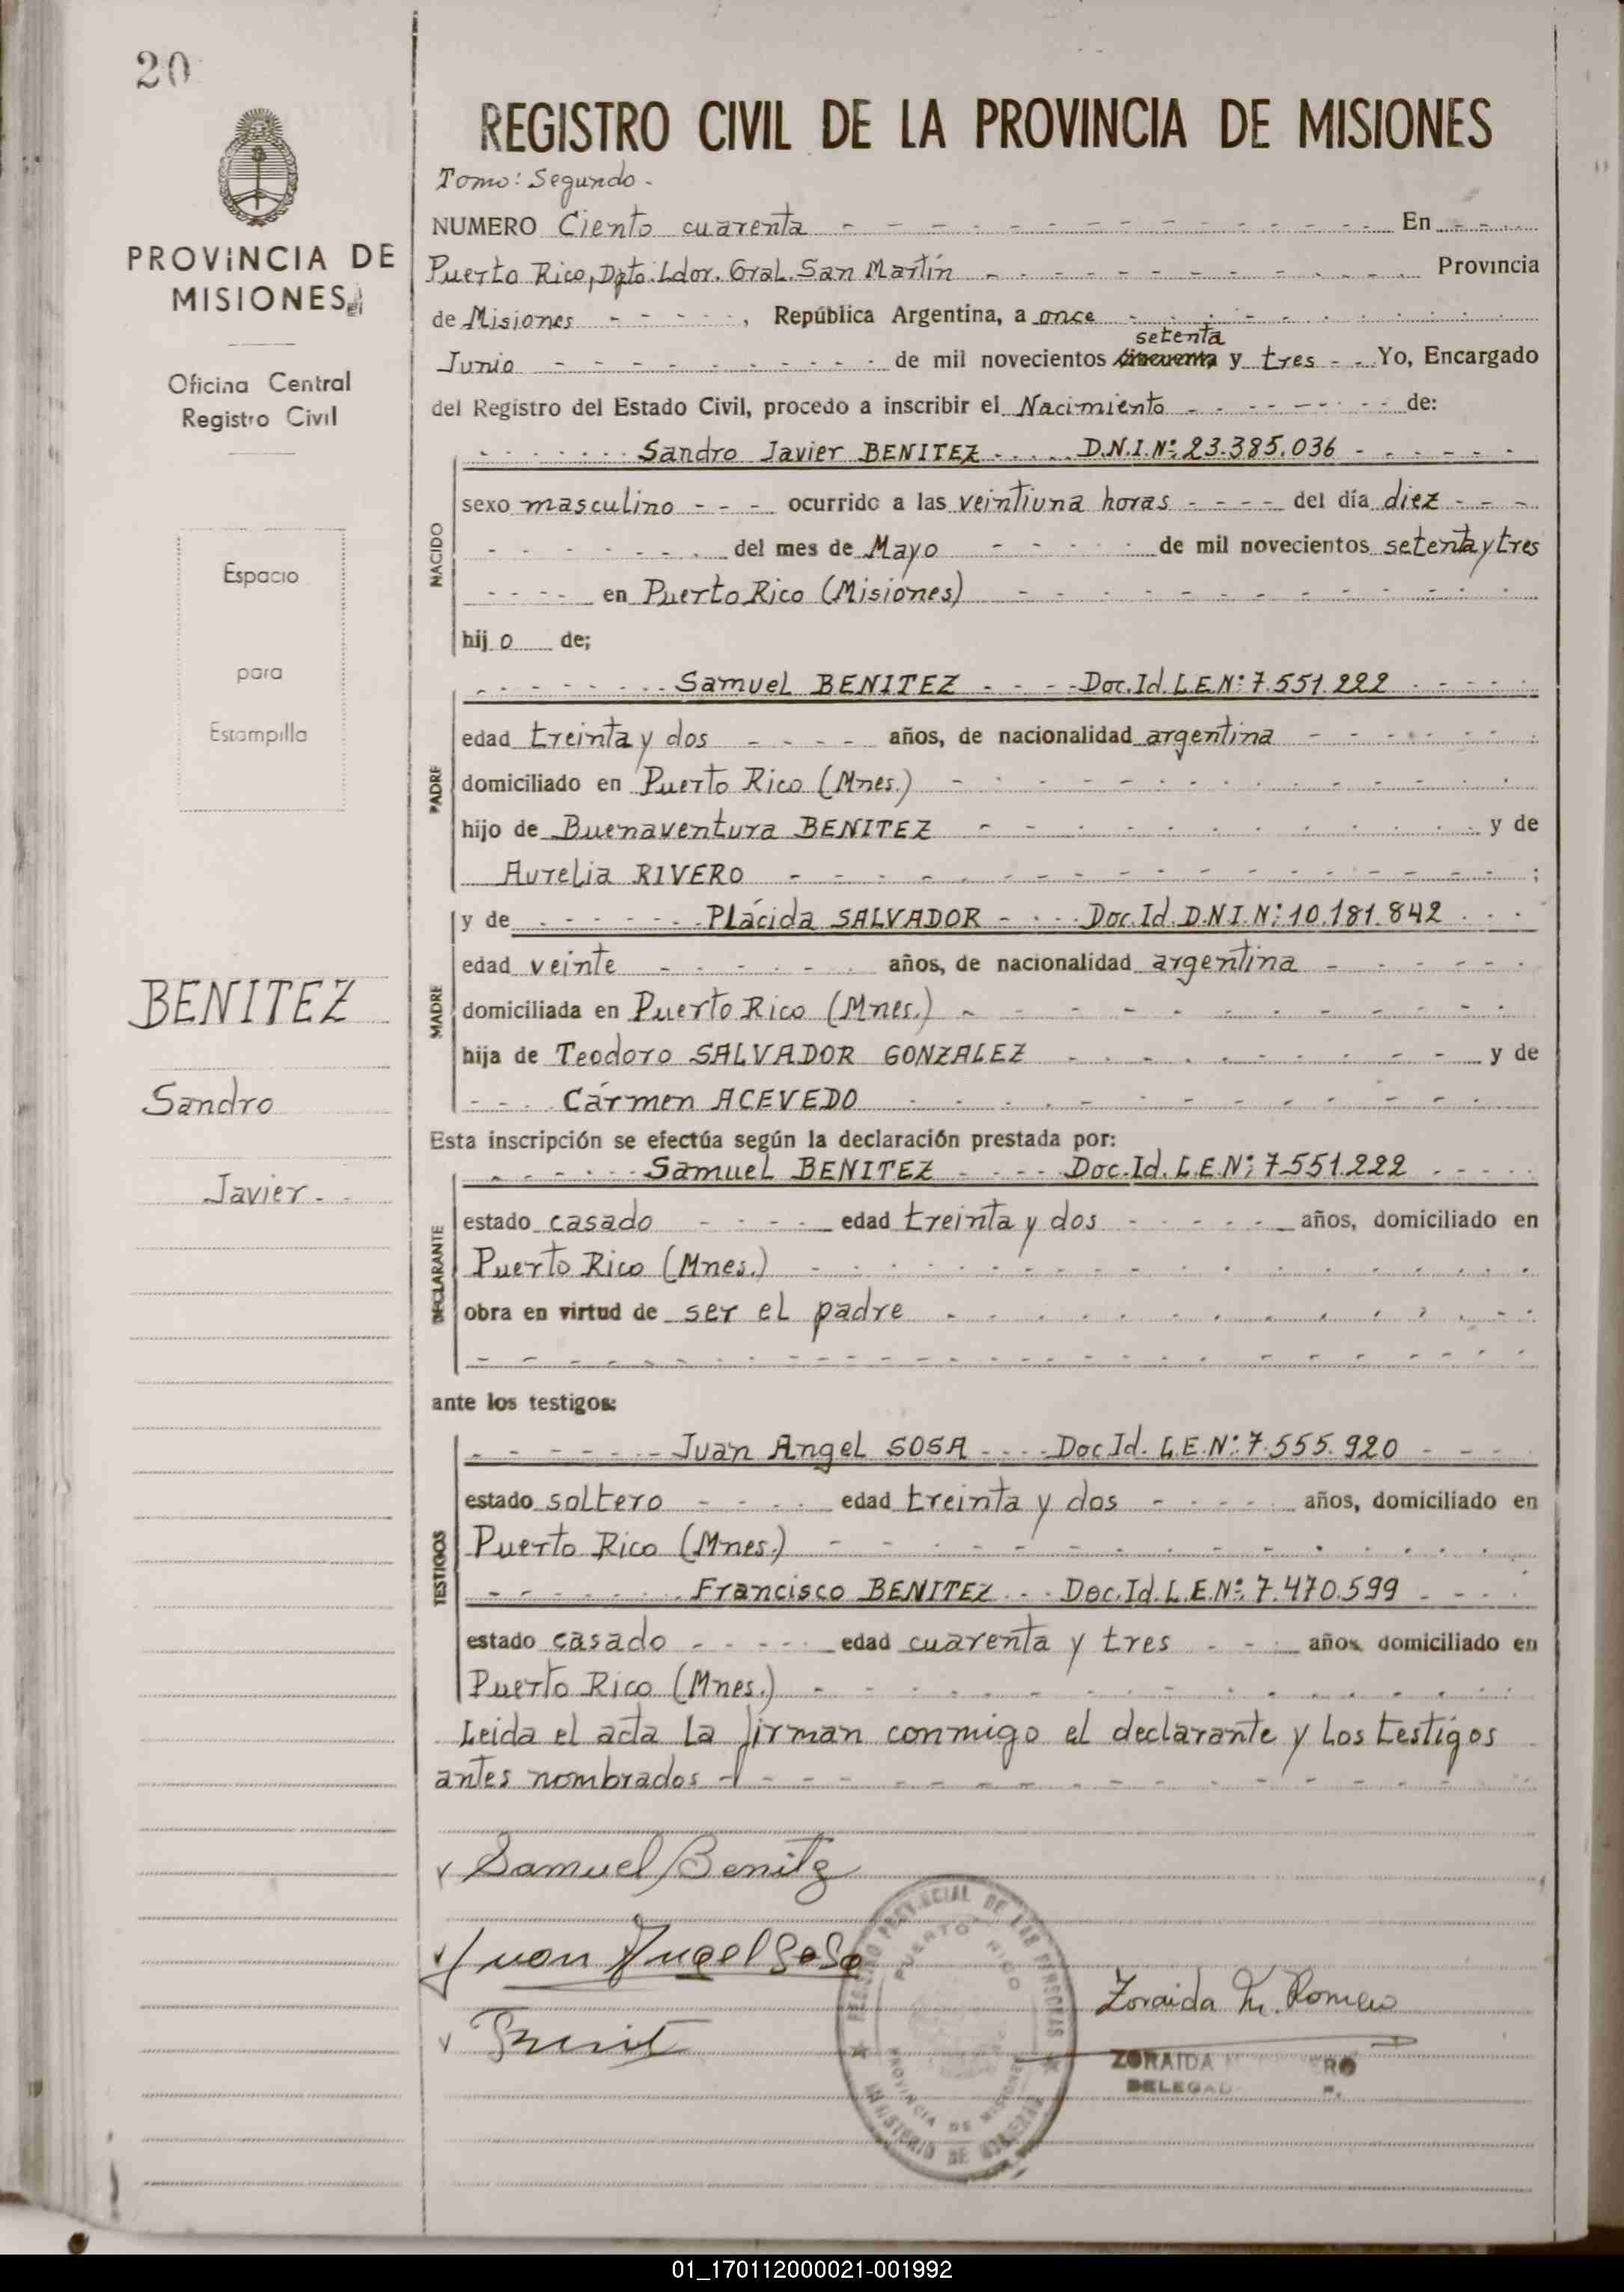 20
PROVINCIA DE
MISIONES
Oficina Central
Registro Civil
Espacio
para
Estampilla
BENITEZ
Sandro
Javier
REGISTRO CIVIL DE LA PROVINCIA DE MISIONES
Tomo: Segundo.
NUMERO Ciento cuarenta En
Puerto Rico, Dpto. Ldor. Gral. San Martín Provincia
de Misiones, República Argentina, a once
setenta
Junio de mil novecientos cincuenta y tres Yo, Encargado
del Registro del Estado Civil, procedo a inscribir el Nacimiento de:
Sandro Javier BENITEZ D.N.I.Nº: 23.385.036
NACIDO
sexo masculino ocurrido a las veintiuna horas del día diez
del mes de Mayo de mil novecientos setenta y tres
en Puerto Rico (Misiones)
hijo de;
PADRE
Samuel BENITEZ Doc.Id.L.E.Nº: 7.551.222
edad treinta y dos años, de nacionalidad argentina
domiciliado en Puerto Rico (Mnes.)
hijo de Buenaventura BENITEZ y de
Aurelia RIVERO ;
MADRE
y de Plácida SALVADOR Doc.Id.D.N.I.Nº: 10.181.842
edad veinte años, de nacionalidad argentina
domiciliada en Puerto Rico (Mnes.)
hija de Teodoro SALVADOR GONZALEZ y de
Cármen ACEVEDO
Esta inscripción se efectúa según la declaración prestada por:
DECLARANTE
Samuel BENITEZ Doc.Id.L.E.Nº: 7.551.222
estado casado edad treinta y dos años, domiciliado en
Puerto Rico (Mnes.)
obra en virtud de ser el padre
ante los testigos:
TESTIGOS
Juan Angel SOSA Doc Id. L.E.Nº: 7.555.920
estado soltero edad treinta y dos años, domiciliado en
Puerto Rico (Mnes.)
Francisco BENITEZ Doc.Id.L.E.Nº: 7.470.599
estado casado edad cuarenta y tres años, domiciliado en
Puerto Rico (Mnes.)
Leida el acta la firman conmigo el declarante y los testigos
antes nombrados
Samuel Benitz
Juan Angel Sosa
Zoraida M. Romero
REGISTRO PROVINCIAL DE LAS PERSONAS
PUERTO RICO
PROVINCIA DE MISIONES
MINISTERIO DE GOBIERNO
ZORAIDA
01_170112000021-001992